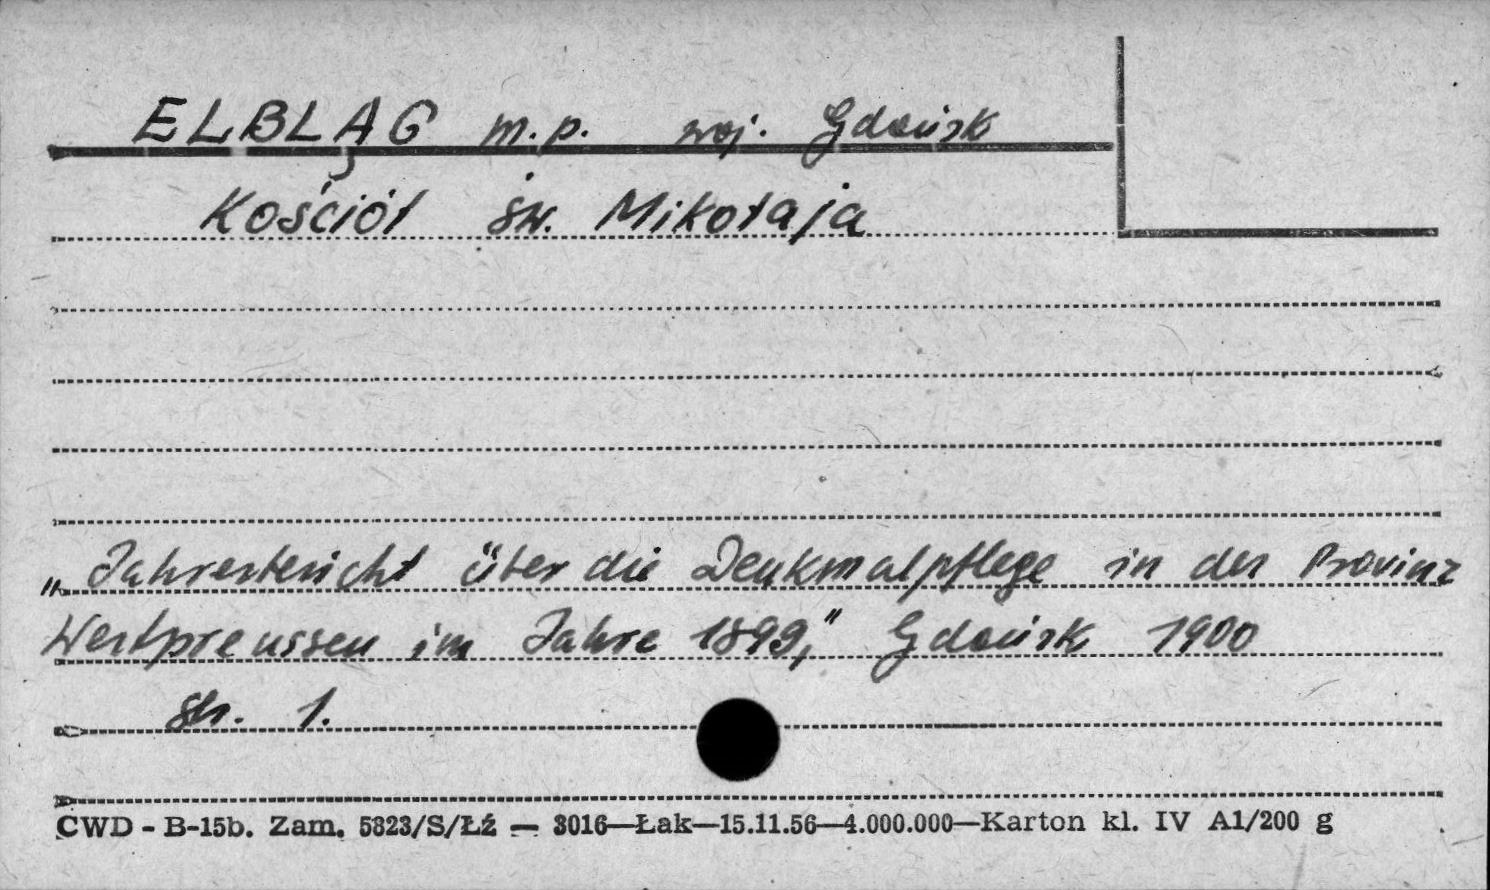 ELBLĄG m.p. woj. Gdańsk
Kościół św. Mikołaja
„Jahresbericht über die Denkmalpflege in der Provinz
Westpreussen im Jahre 1899," Gdańsk 1900
str. 1.
CWD - B-15b. Zam. 5323/S/Łź — 3016—Łak—15.11.56—4.000.000—Karton kl. IV A1/200 g